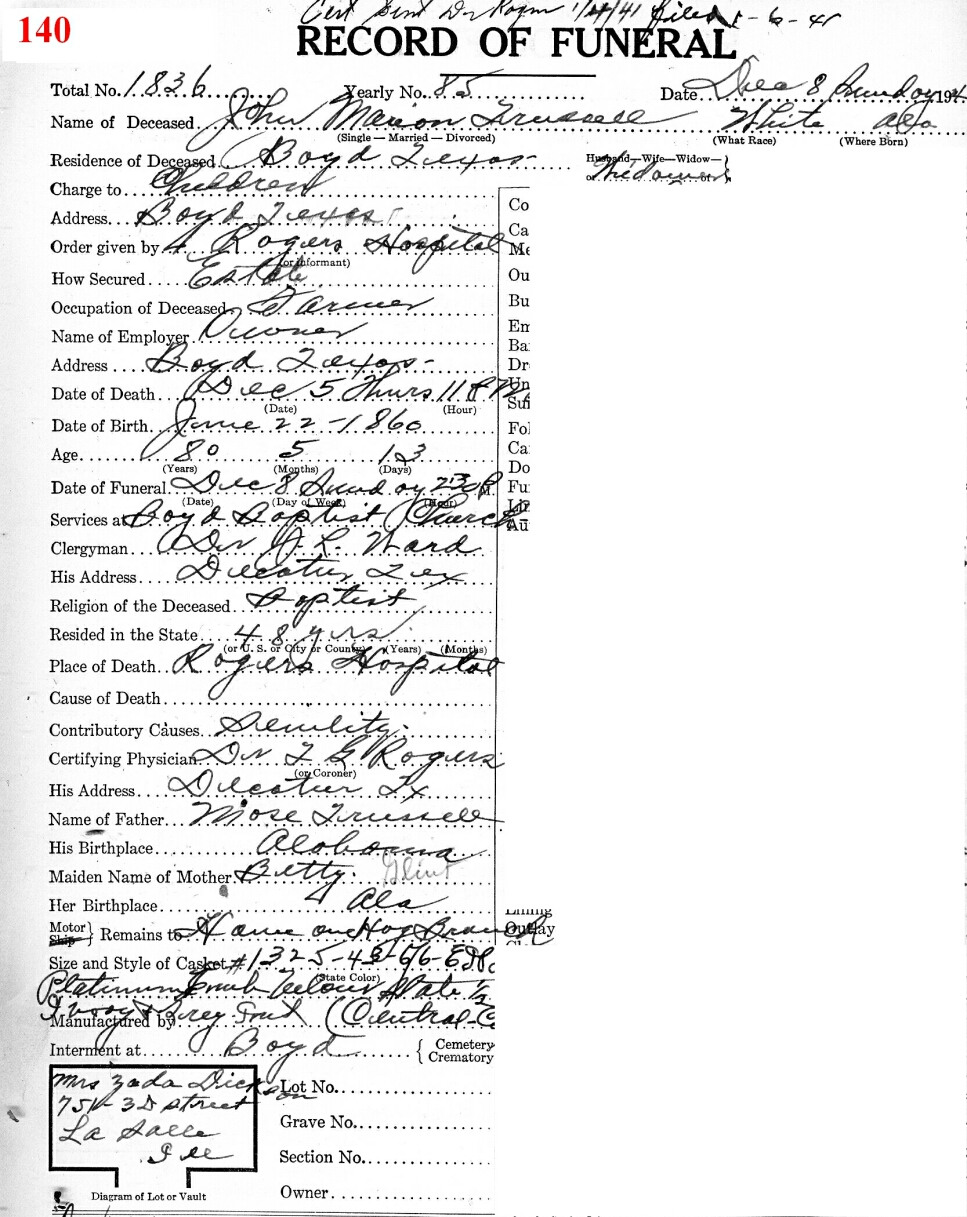 140
Cert sent Dr Rogers 1/4/41 filed 1-6-41
RECORD OF FUNERAL
Total No. 1836 Yearly No. 85 Date Dec 8 Sunday 194
Name of Deceased John Marion Trussell White Ala
(Single — Married — Divorced) (What Race) (Where Born)
Residence of Deceased Boyd Texas Husband—Wife—Widow—
or Widower of
Charge to Children
Address Boyd Texas Co
Ca
Order given by Rogers Hospital Me
(or informant)
How Secured Estate Ou
Occupation of Deceased Farmer Bu
Name of Employer Owner Em
Ba
Address Boyd Texas Dr
Date of Death Dec 5 Thurs 11 P M Un
(Date) (Hour) Sui
Date of Birth June 22-1860 Fol
Age 80 5 13 Ca
(Years) (Months) (Days) Do
Date of Funeral Dec 8 Sunday 2:30 P M Fu
(Date) (Day of Week) (Hour) Lin
Services at Boyd Baptist Church Au
Clergyman Dr J. L. Ward
His Address Decatur Tex
Religion of the Deceased Baptist
Resided in the State 48 yrs
(or U. S. or City or County) (Years) (Months)
Place of Death Rogers Hospital
Cause of Death
Contributory Causes Senility
Certifying Physician Dr T G Rogers
(or Coroner)
His Address Decatur Tx
Name of Father Mose Trussell
His Birthplace Alabama
Maiden Name of Mother Betty
Her Birthplace Ala
Motor
Ship } Remains to Home on Hog Branch Outlay
Size and Style of Casket #1325-4S-6/6-EDP
(State Color)
Platinum Velour Plate 1/2
Ivory & Grey
Manufactured by (Central-C
Interment at Boyd { Cemetery
Crematory
Mrs Zada Dickson Lot No.
751-3D street
La Salle Grave No.
Ill Section No.
Diagram of Lot or Vault Owner